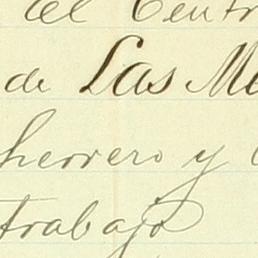 del Centr
de Las Me
herrero y
trabajo